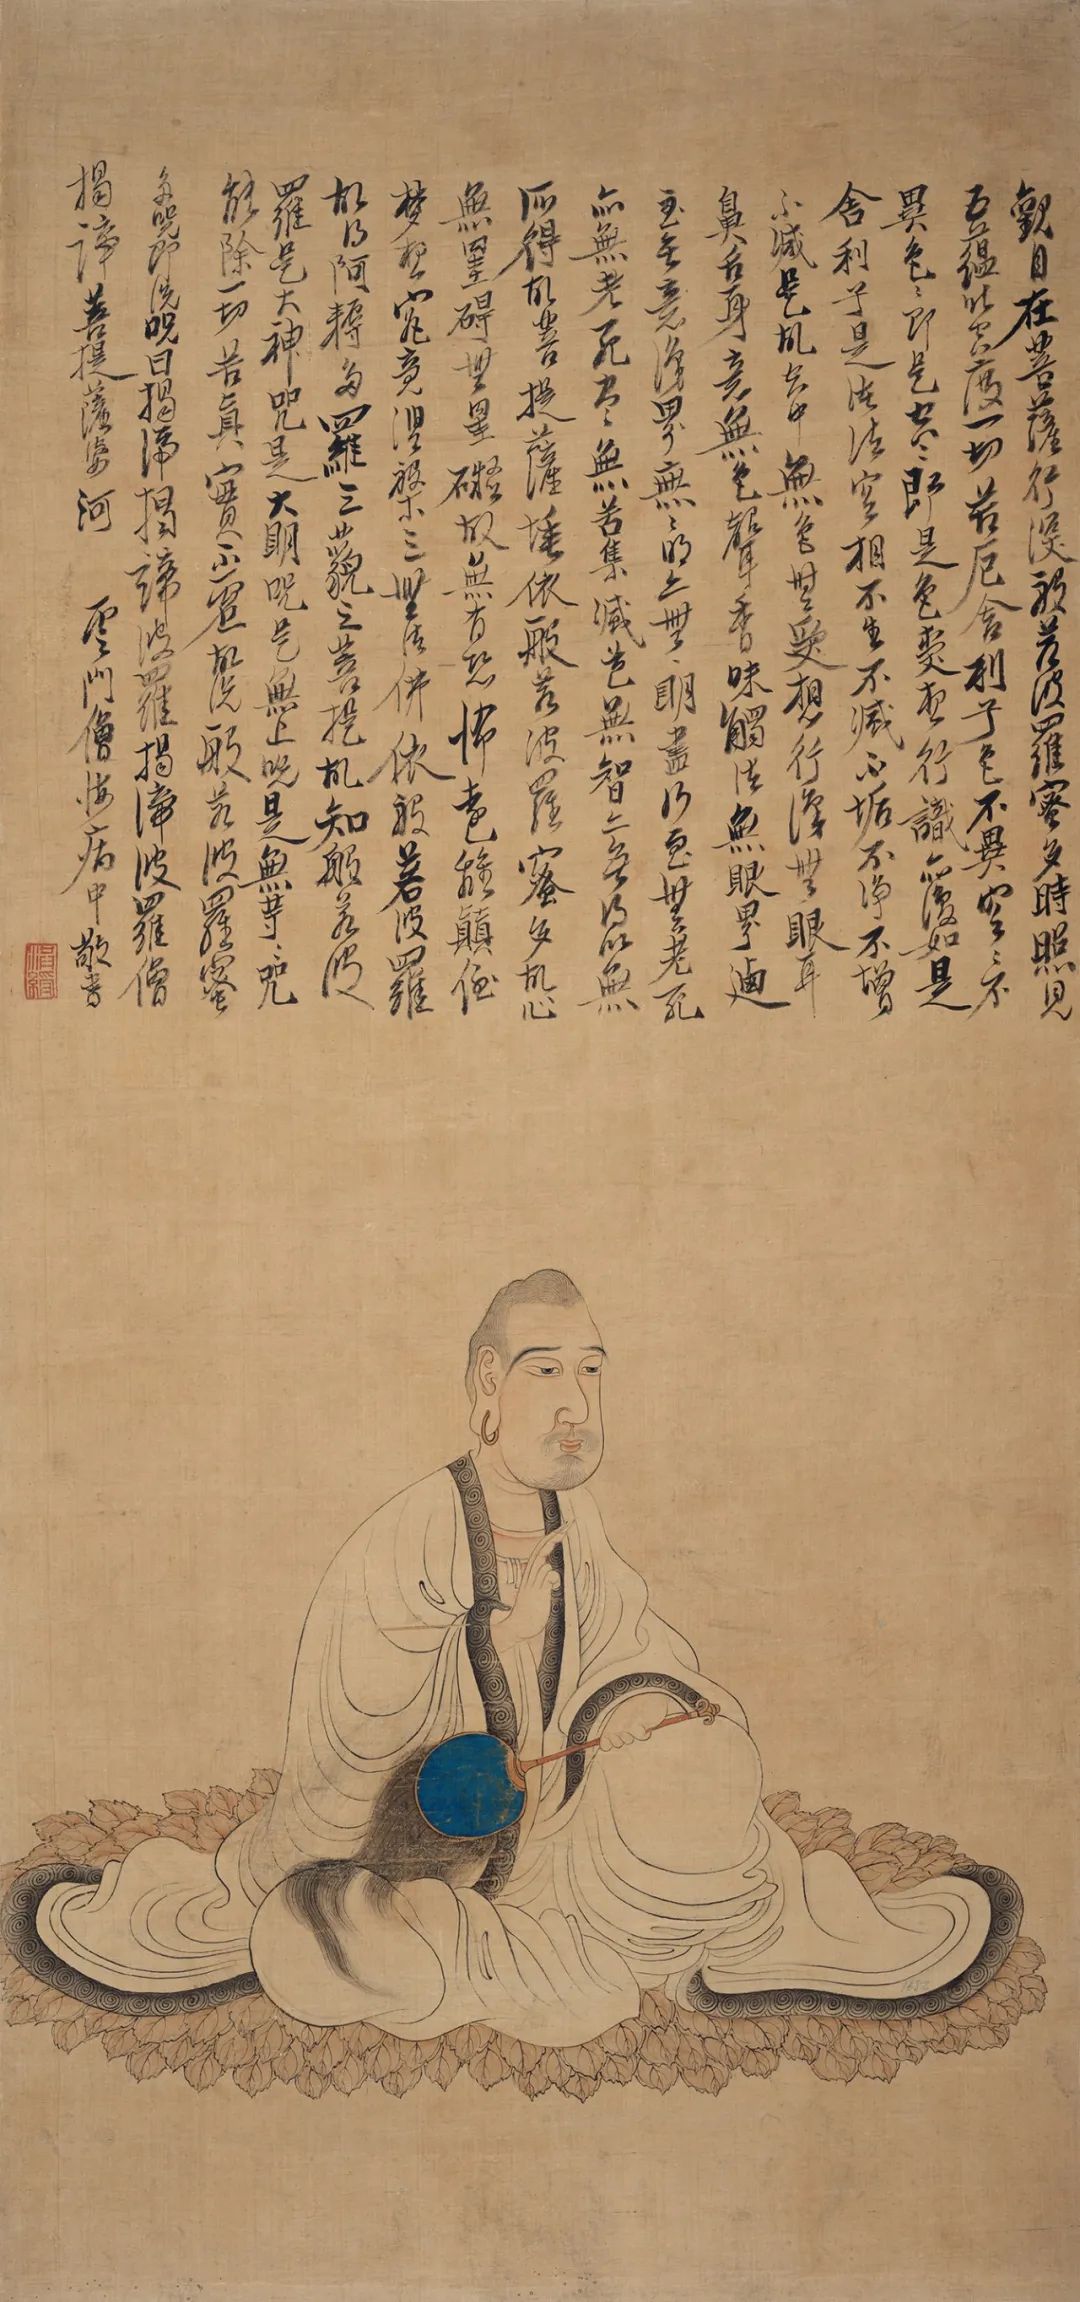 觀自在菩薩行深般若波羅蜜多時照見
五蘊皆空度一切苦厄舍利子色不異空空不
異色色即是空空即是色受想行識亦復如是
舍利子是諸法空相不生不滅不垢不淨不增
不減是故空中無色無受想行識無眼耳
鼻舌身意無色聲香味觸法無眼界乃
至無意識界無無明亦無無明盡乃至無老死
亦無老死盡無苦集滅道無智亦無得以無
所得故菩提薩埵依般若波羅蜜多故心
無罣碍無罣礙故無有恐怖遠離顛倒
夢想究竟涅槃三世諸佛依般若波羅
故得阿耨多羅三藐三菩提故知般若波
羅是大神咒是大明咒是無上咒是無等等咒
能除一切苦真實不虛故說般若波羅蜜
多咒即說咒曰揭諦揭諦波羅揭諦波羅僧
揭諦菩提薩婆訶 雲門僧悔病中敬書